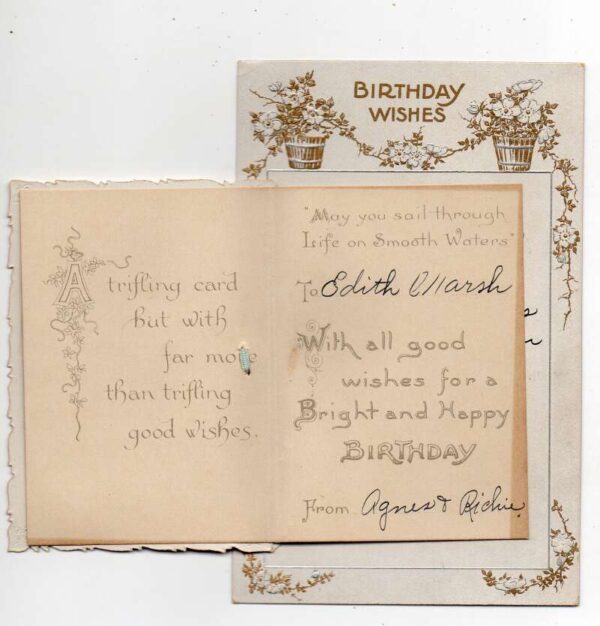 BIRTHDAY
WISHES
A
trifling card
but with
far more
than trifling
good wishes.
"May you sail through
Life on Smooth Waters"
To Edith Marsh
With all good
wishes for a
Bright and Happy
BIRTHDAY
From Agnes & Richie